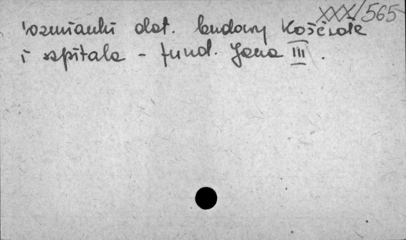 XXX/565
wzmianki dot. budowy Kościoła
i szpitala - fund. Jana III.